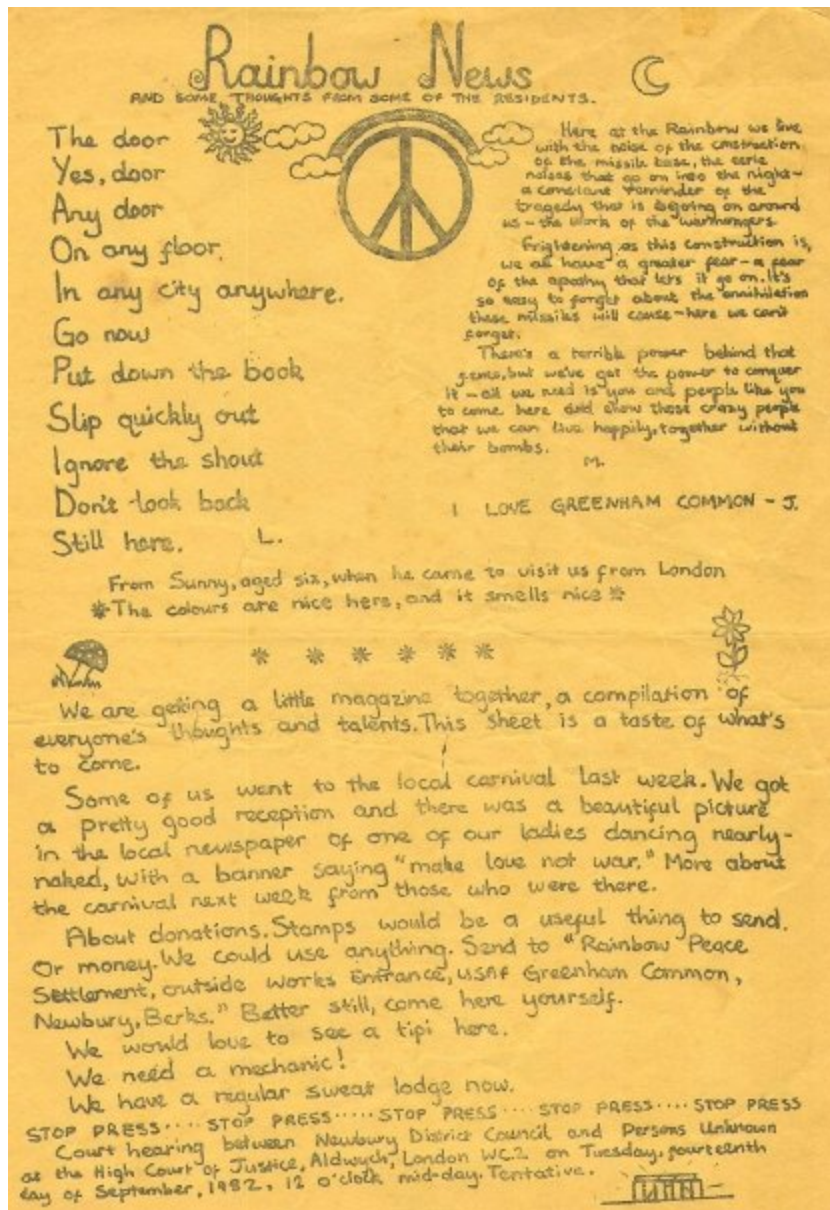 Rainbow News
AND SOME THOUGHTS FROM SOME OF THE RESIDENTS.
The door
Yes, door
Any door
On any floor,
In any city anywhere.
Go now
Put down the book
Slip quickly out
Ignore the shout
Don't look back
Still here. L.
Here at the Rainbow we live
with the noise of the construction
of the missile base, the eerie
noises that go on into the night-
a constant reminder of the
tragedy that is going on around
us - the work of the warmongers.
Frightening as this construction is,
we all have a greater fear - a fear
of the apathy that lets it go on. It's
so easy to forget about the annihilation
these missiles will cause - here we can't
forget.
There's a terrible power behind that
fence, but we've got the power to conquer
it - all we need is you and people like you
to come here and show those crazy people
that we can live happily, together without
their bombs.
M.
I LOVE GREENHAM COMMON - J.
From Sunny, aged six, when he came to visit us from London
*The colours are nice here, and it smells nice*
* * * * * *
We are getting a little magazine together, a compilation of
everyone's thoughts and talents. This sheet is a taste of what's
to come.
Some of us went to the local carnival last week. We got
a pretty good reception and there was a beautiful picture
in the local newspaper of one of our ladies dancing nearly-
naked, with a banner saying "make love not war." More about
the carnival next week from those who were there.
About donations. Stamps would be a useful thing to send.
Or money. We could use anything. Send to "Rainbow Peace
Settlement, outside Works Entrance, USAF Greenham Common,
Newbury, Berks." Better still, come here yourself.
We would love to see a tipi here.
We need a mechanic!
We have a regular sweat lodge now.
STOP PRESS.... STOP PRESS..... STOP PRESS.... STOP PRESS.... STOP PRESS
Court hearing between Newbury District Council and Persons Unknown
at the High Court of Justice, Aldwych, London WC2 on Tuesday, fourteenth
day of September, 1982, 12 o'clock mid-day. Tentative.